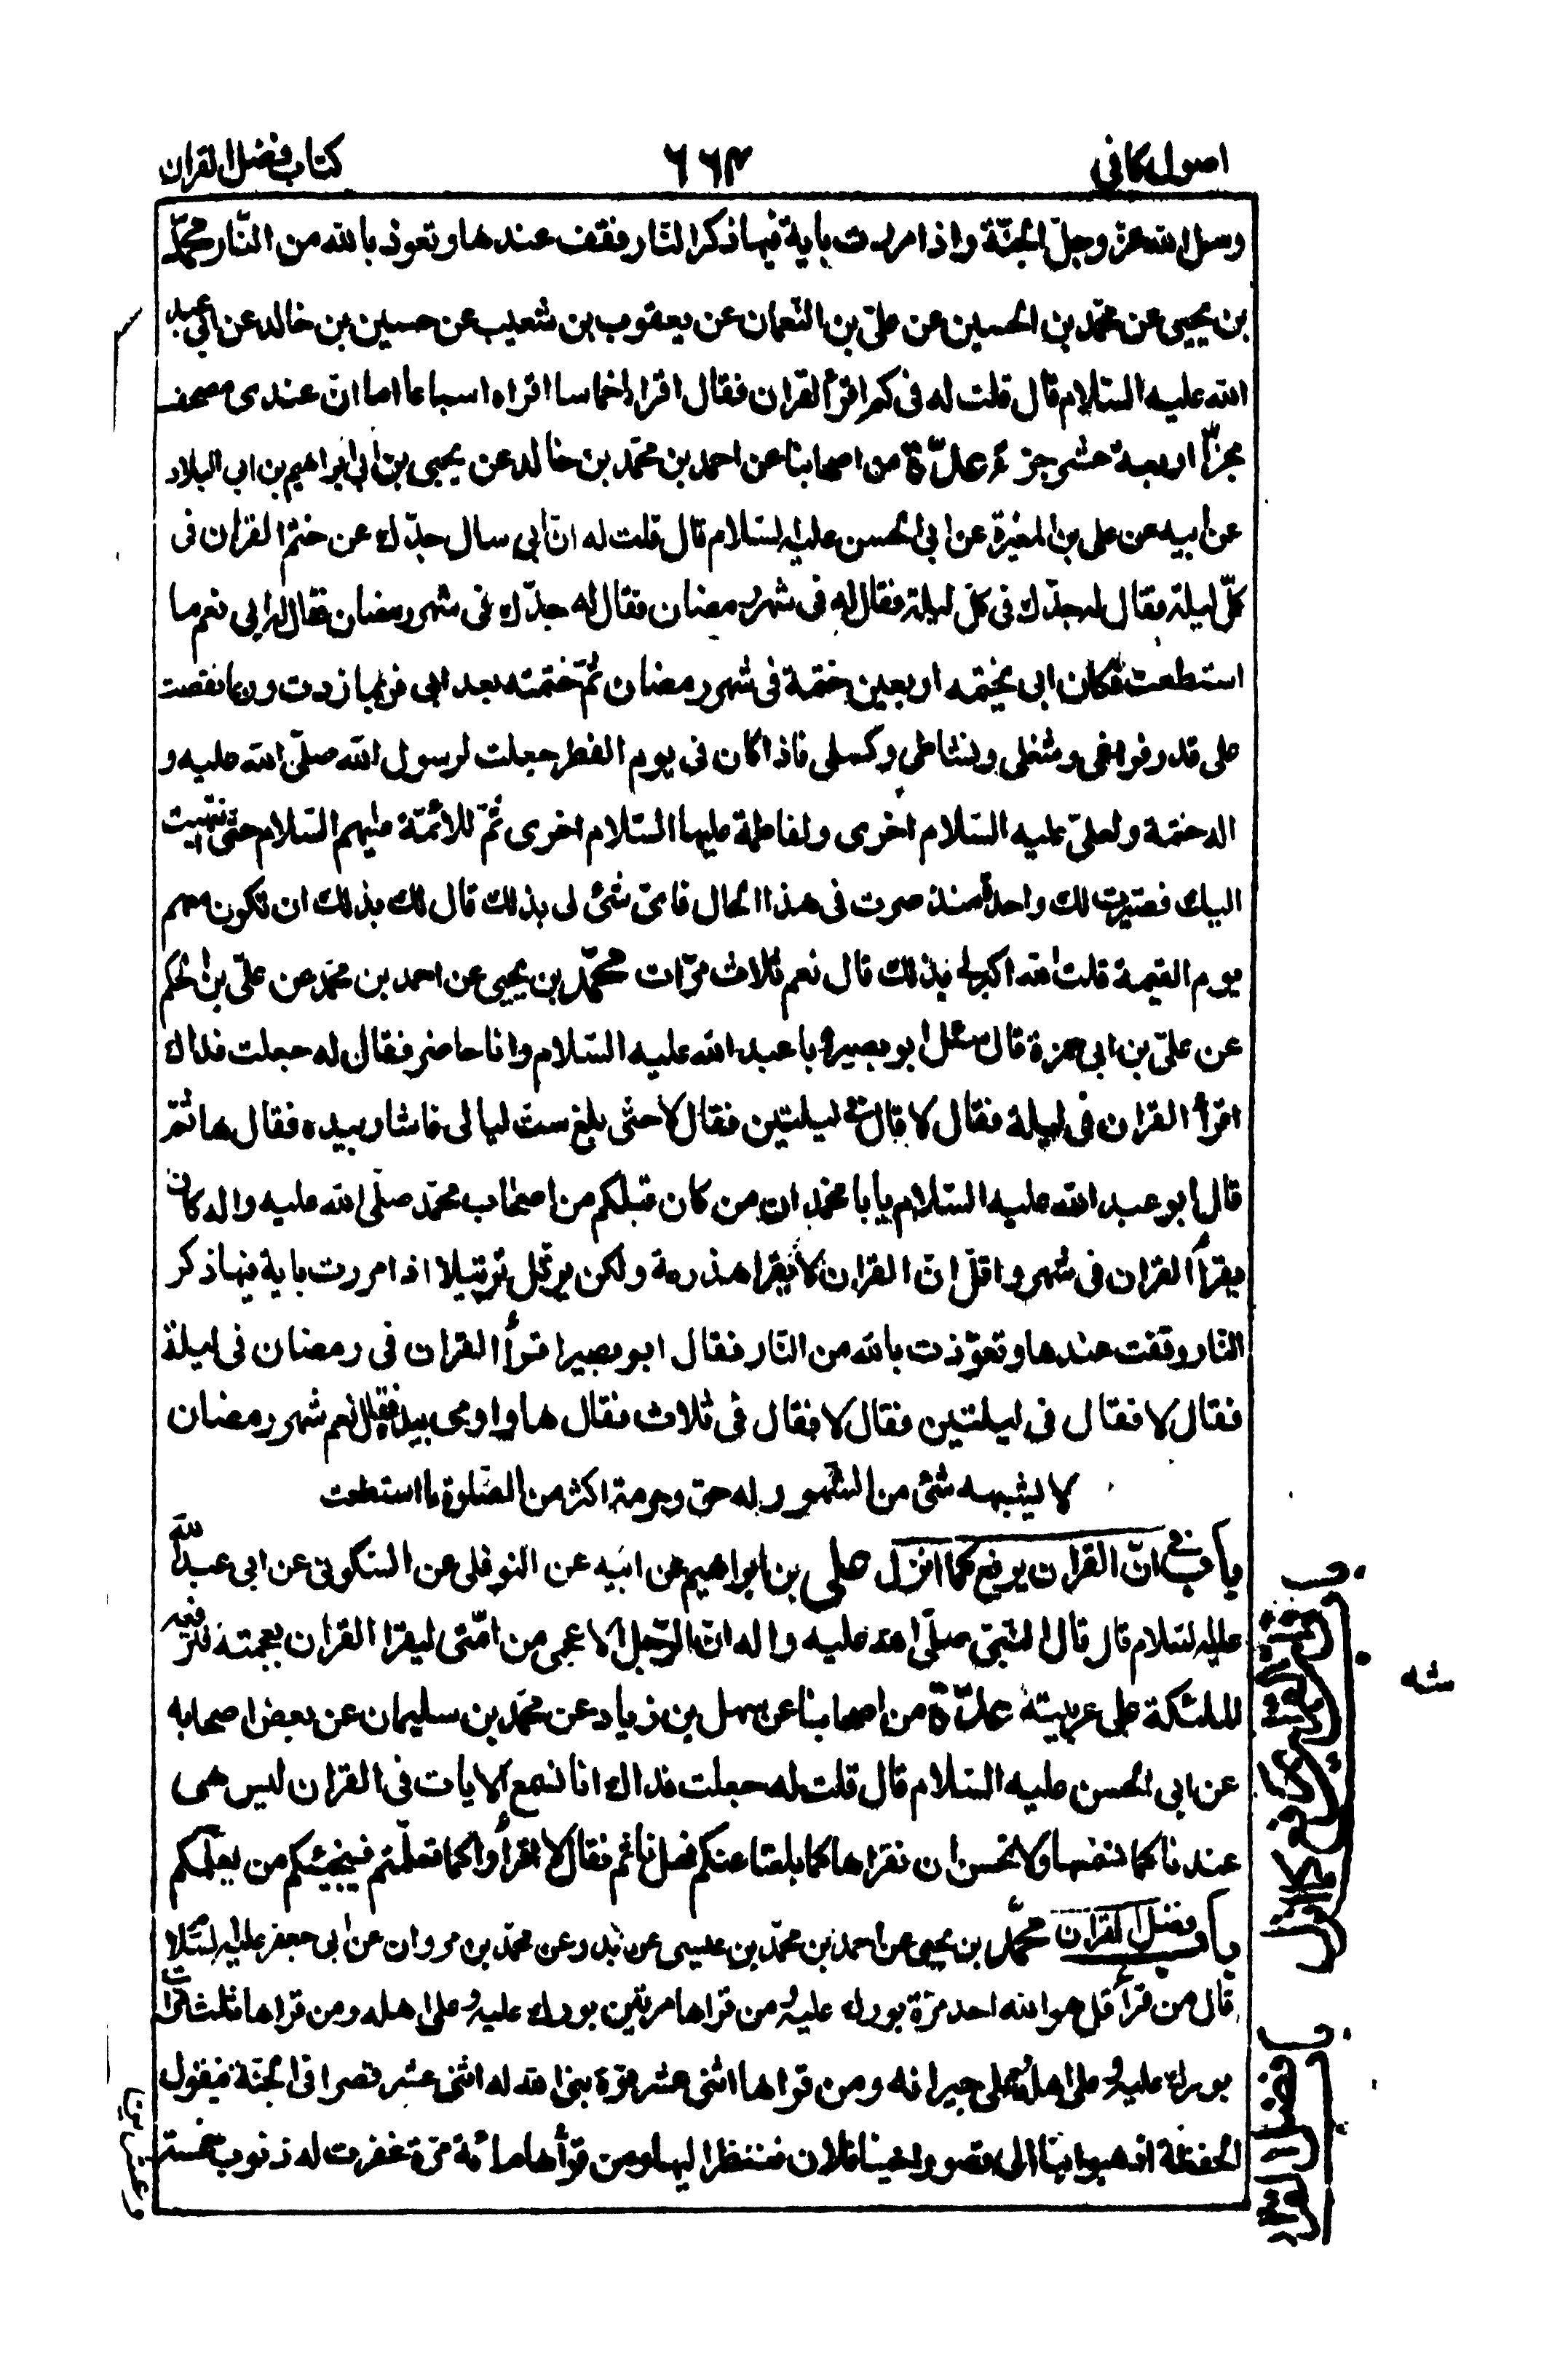 اصول كافى
٦٦٤
كتاب فضل القران
وسل الله عزّ وجلّ الجنّة واذا مررت باية فيها ذكر النّار فقف عندها وتعوذ بالله من النّار محمّد
بن يحيى عن محمّد بن الحسين عن علىّ بن النّعمان عن يعقوب بن شعيب عن حسين بن خالد عن ابى عبد
الله عليه السّلام قال قلت له فى كم اقرأ القران فقال اقراه اخماسا اقراه اسباعا اما انّ عندى مصحف
مجزّأ اربعة عشر جزء عدّة من اصحابنا عن احمد بن محمّد بن خالد عن يحيى بن ابراهيم بن ابى البلاد
عن ابيه عن على بن المغيرة عن ابى الحسن عليه السّلام قال قلت له انّ ابى سال جدّك عن ختم القران فى
كلّ ليلة فقال له جدّك فى كلّ ليلة فقال له فى شهر رمضان فقال له جدّك فى شهر رمضان فقال له ابى نعم ما
استطعت فكان ابى يختمه اربعين ختمة فى شهر رمضان ثمّ ختمته بعد ابى فربما زدت وربما نقصت
على قدر فراغى وشغلى ونشاطى وكسلى فاذا كان فى يوم الفطر جعلت لرسول الله صلّى الله عليه و
اله ختمة ولعلىّ عليه السّلام اخرى ولفاطمة عليها السّلام اخرى ثمّ للائمّة عليهم السّلام حتّى انتهيت
اليك فصيّرت لك واحدة منذ صرت فى هذا الحال فاىّ شئ لى بذلك قال لك بذلك ان تكون معهم
يوم القيمة قلت الله اكبر لى بذلك قال نعم ثلاث مرّات محمّد بن يحيى عن احمد بن محمّد عن علىّ بن الحكم
عن علىّ بن ابى حمزة قال سئل ابو بصير ابا عبد الله عليه السّلام وانا حاضر فقال له جعلت فداك
اقرأ القران فى ليلة فقال لا قال فى ليلتين فقال لا حتّى بلغ ستّ ليالى فاشار بيده فقال ها ثمّ
قال ابو عبد الله عليه السّلام يا با محمّد ان من كان قبلكم من اصحاب محمّد صلّى الله عليه واله كان
يقرأ القران فى شهر واقلّ انّ القران لا يقرا هذرمة ولكن يرتّل ترتيلا اذا مررت باية فيها ذكر
النّار وقفت عندها وتعوّذت بالله من النّار فقال ابو بصير اقرأ القران فى رمضان فى ليلة
فقال لا فقال فى ليلتين فقال لا فقال فى ثلاث فقال ها واومى بيده فقال نعم شهر رمضان
لا يشبهه شئ من الشّهور له حق وحرمة اكثر من الصّلوة ما استطعت
باب فى انّ القران يرفع كما انزل على بن ابراهيم عن ابيه عن النوفلى عن السّكونى عن ابى عبد الله
عليه السّلام قال قال النّبىّ صلّى الله عليه واله انّ الرّجل الاعجمى من امّتى ليقرا القران بعجمته فترفعه
الملئكة على عربيّته عدّة من اصحابنا عن سهل بن زياد عن محمّد بن سليمان عن بعض اصحابه
عن ابى الحسن عليه السّلام قال قلت له جعلت فداك انا نسمع الايات فى القران ليس هى
عندنا كما نسمعها ولا نحسن ان نقراها كما بلغنا عنكم فهل ناثم فقال لا اقرأوا كما تعلّمتم فسيجيئكم من يعلّمكم
باب فضل القران محمّد بن يحيى عن احمد بن محمّد بن عيسى عن بدر عن محمّد بن مروان عن ابى جعفر عليه السّلام
قال من قرأ قل هو الله احد مرّة بورك عليه ومن قراها مرّتين بورك عليه وعلى اهله ومن قراها ثلث مرّات
بورك عليه وعلى اهله وعلى جيرانه ومن قراها اثنى عشر مرّة بنى الله له اثنى عشر قصرا فى الجنّة فيقول
الحفظة اذهبوا بنا الى قصور اخينا فلان فننظر اليها ومن قرأها مائة مرّة غفرت له ذنوب خمسة